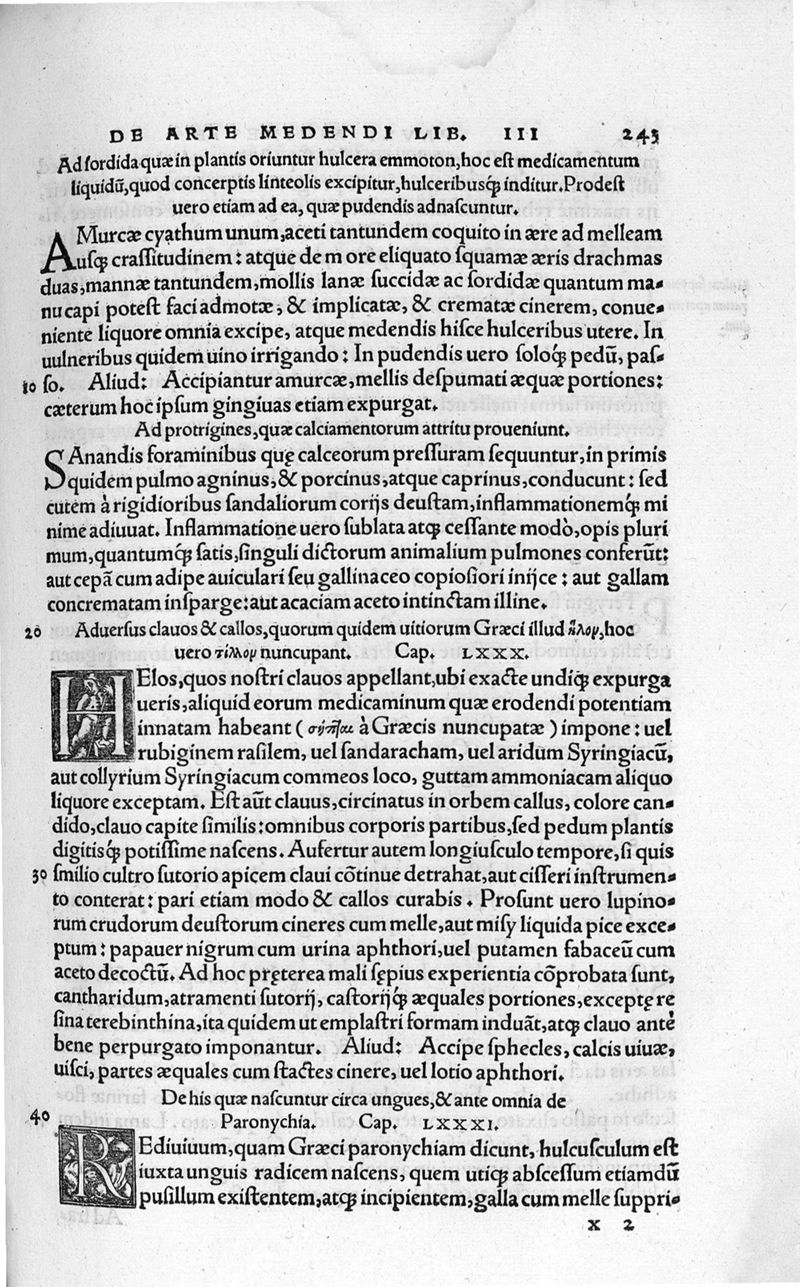 DE ARTE MEDENDI LIB. III 243
Ad sordida quæ in plantis oriuntur hulcera emmoton, hoc est medicamentum
liquidũ, quod concerptis linteolis excipitur, hulceribusq́; inditur. Prodest
uero etiam ad ea, quæ pudendis adnascuntur.
AMurcæ cyathum unum, aceti tantundem coquito in ære ad melleam
usq; crassitudinem: atque de more eliquato squamæ æris drachmas
duas, mannæ tantundem, mollis lanæ succidæ ac sordidæ quantum ma-
nu capi potest faci admotæ, & implicatæ, & crematæ cinerem, conue-
niente liquore omnia excipe, atque medendis hisce hulceribus utere. In
uulneribus quidem uino irrigando: In pudendis uero soloq́; pedũ, pas-
10 so. Aliud: Accipiantur amurcæ, mellis despumati æquæ portiones:
cæterum hoc ipsum gingiuas etiam expurgat.
Ad protrigines, quæ calciamentorum attritu proueniunt.
SAnandis foraminibus quę calceorum pressuram sequuntur, in primis
quidem pulmo agninus, & porcinus, atque caprinus, conducunt: sed
cutem à rigidioribus sandaliorum corijs deustam, inflammationemq́; mi
nime adiuuat. Inflammatione uero sublata atq; cessante modò, opis pluri
mum, quantumq́; satis, singuli dictorum animalium pulmones conferũt:
aut cepã cum adipe auiculari seu gallinaceo copiosiori inijce: aut gallam
concrematam insparge: aut acaciam aceto intinctam illine.
20 Aduersus clauos & callos, quorum quidem uitiorum Græci illud ἧλον, hoc
uero τύλλον nuncupant. Cap. LXXX.
HElos, quos nostri clauos appellant, ubi exacte undiq; expurga
ueris, aliquid eorum medicaminum quæ erodendi potentiam
innatam habeant (σηπ]αι à Græcis nuncupatæ) impone: uel
rubiginem rasilem, uel sandaracham, uel aridum Syringiacũ,
aut collyrium Syringiacum commeos loco, guttam ammoniacam aliquo
liquore exceptam. Est aũt clauus, circinatus in orbem callus, colore can-
dido, clauo capite similis: omnibus corporis partibus, sed pedum plantis
digitisq́; potissime nascens. Aufertur autem longiusculo tempore, si quis
30 smilio cultro sutorio apicem claui cõtinue detrahat, aut cisseri instrumen-
to conterat: pari etiam modo & callos curabis. Prosunt uero lupino-
rum crudorum deustorum cineres cum melle, aut misy liquida pice exce-
ptum: papauer nigrum cum urina aphthori, uel putamen fabaceũ cum
aceto decoctũ. Ad hoc pręterea mali sępius experientia cõprobata sunt,
cantharidum, atramenti sutorij, castorijq́; æquales portiones, exceptę re
sina terebinthina, ita quidem ut emplastri formam induãt, atq; clauo ante
bene perpurgato imponantur. Aliud: Accipe sphecles, calcis uiuæ,
uisci, partes æquales cum stactes cinere, uel lotio aphthori.
De his quæ nascuntur circa ungues, & ante omnia de
40 Paronychia. Cap. LXXXI.
REdiuiuum, quam Græci paronychiam dicunt, hulcusculum est
iuxta unguis radicem nascens, quem utiq; abscessum etiamdũ
pusillum existentem, atq; incipientem, galla cum melle suppri-
X 2